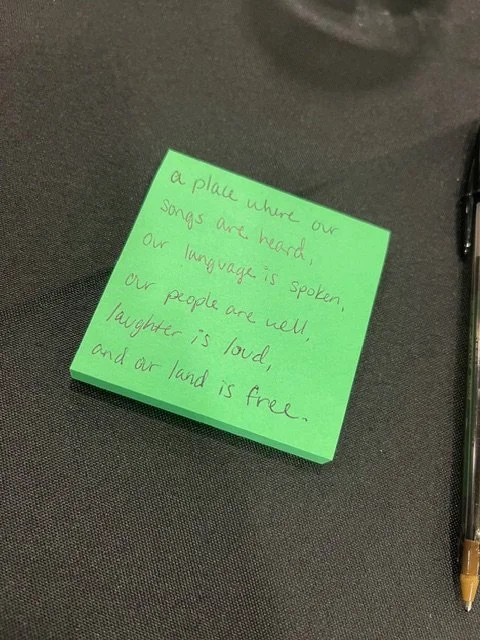 a place where our
songs are heard,
our language is spoken,
our people are well,
laughter is loud,
and our land is free.